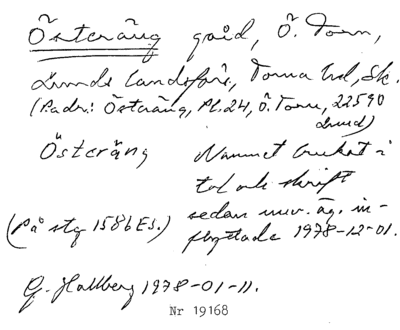 Österäng gård, Ö. Torn,
Lunds landsförs, Torna hd, Sk.
(Padr.: Österäng, Pl. 24, Ö. Torn, 22590
Lund)
Österäng Namnet brukat i
tal och skrift
sedan nuv. äg. in-
(På stg 1586 Es.) flyttade 1978-12-01.
G. Hallberg 1978-01-11.
Nr 19168